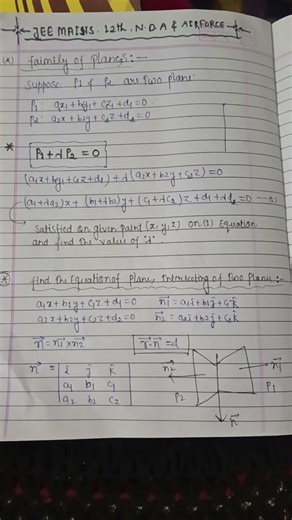 JEE MAINS. 12th. N.D.A & AIRFORCE
(A) faimily of planes:-
Suppose P1 & P2 are two plane:
P1: a1x+b1y+c1z+d1=0
P2: a2x+b2y+c2z+d2=0
* P1+λP2=0
(a1x+b1y+c1z+d1)+λ(a2x+b2y+c2z)=0
(a1+λa2)x+(b1+λb2)y+(c1+λc2)z+d1+λd2=0 —(3)
Satisfied on given point (x,y,z) on (3) Equation
and find the value of 'λ'.
* find the Equation of plane Intersecting of two plane:-
a1x+b1y+c1z+d1=0 n1=a1i+b1j+c1k
a2x+b2y+c2z+d2=0 n2=a2i+b2j+c2k
n=n1×n2 r·n=d
n = i j k
a1 b1 c1
a2 b2 c2
n2 n1
P2 P1
n